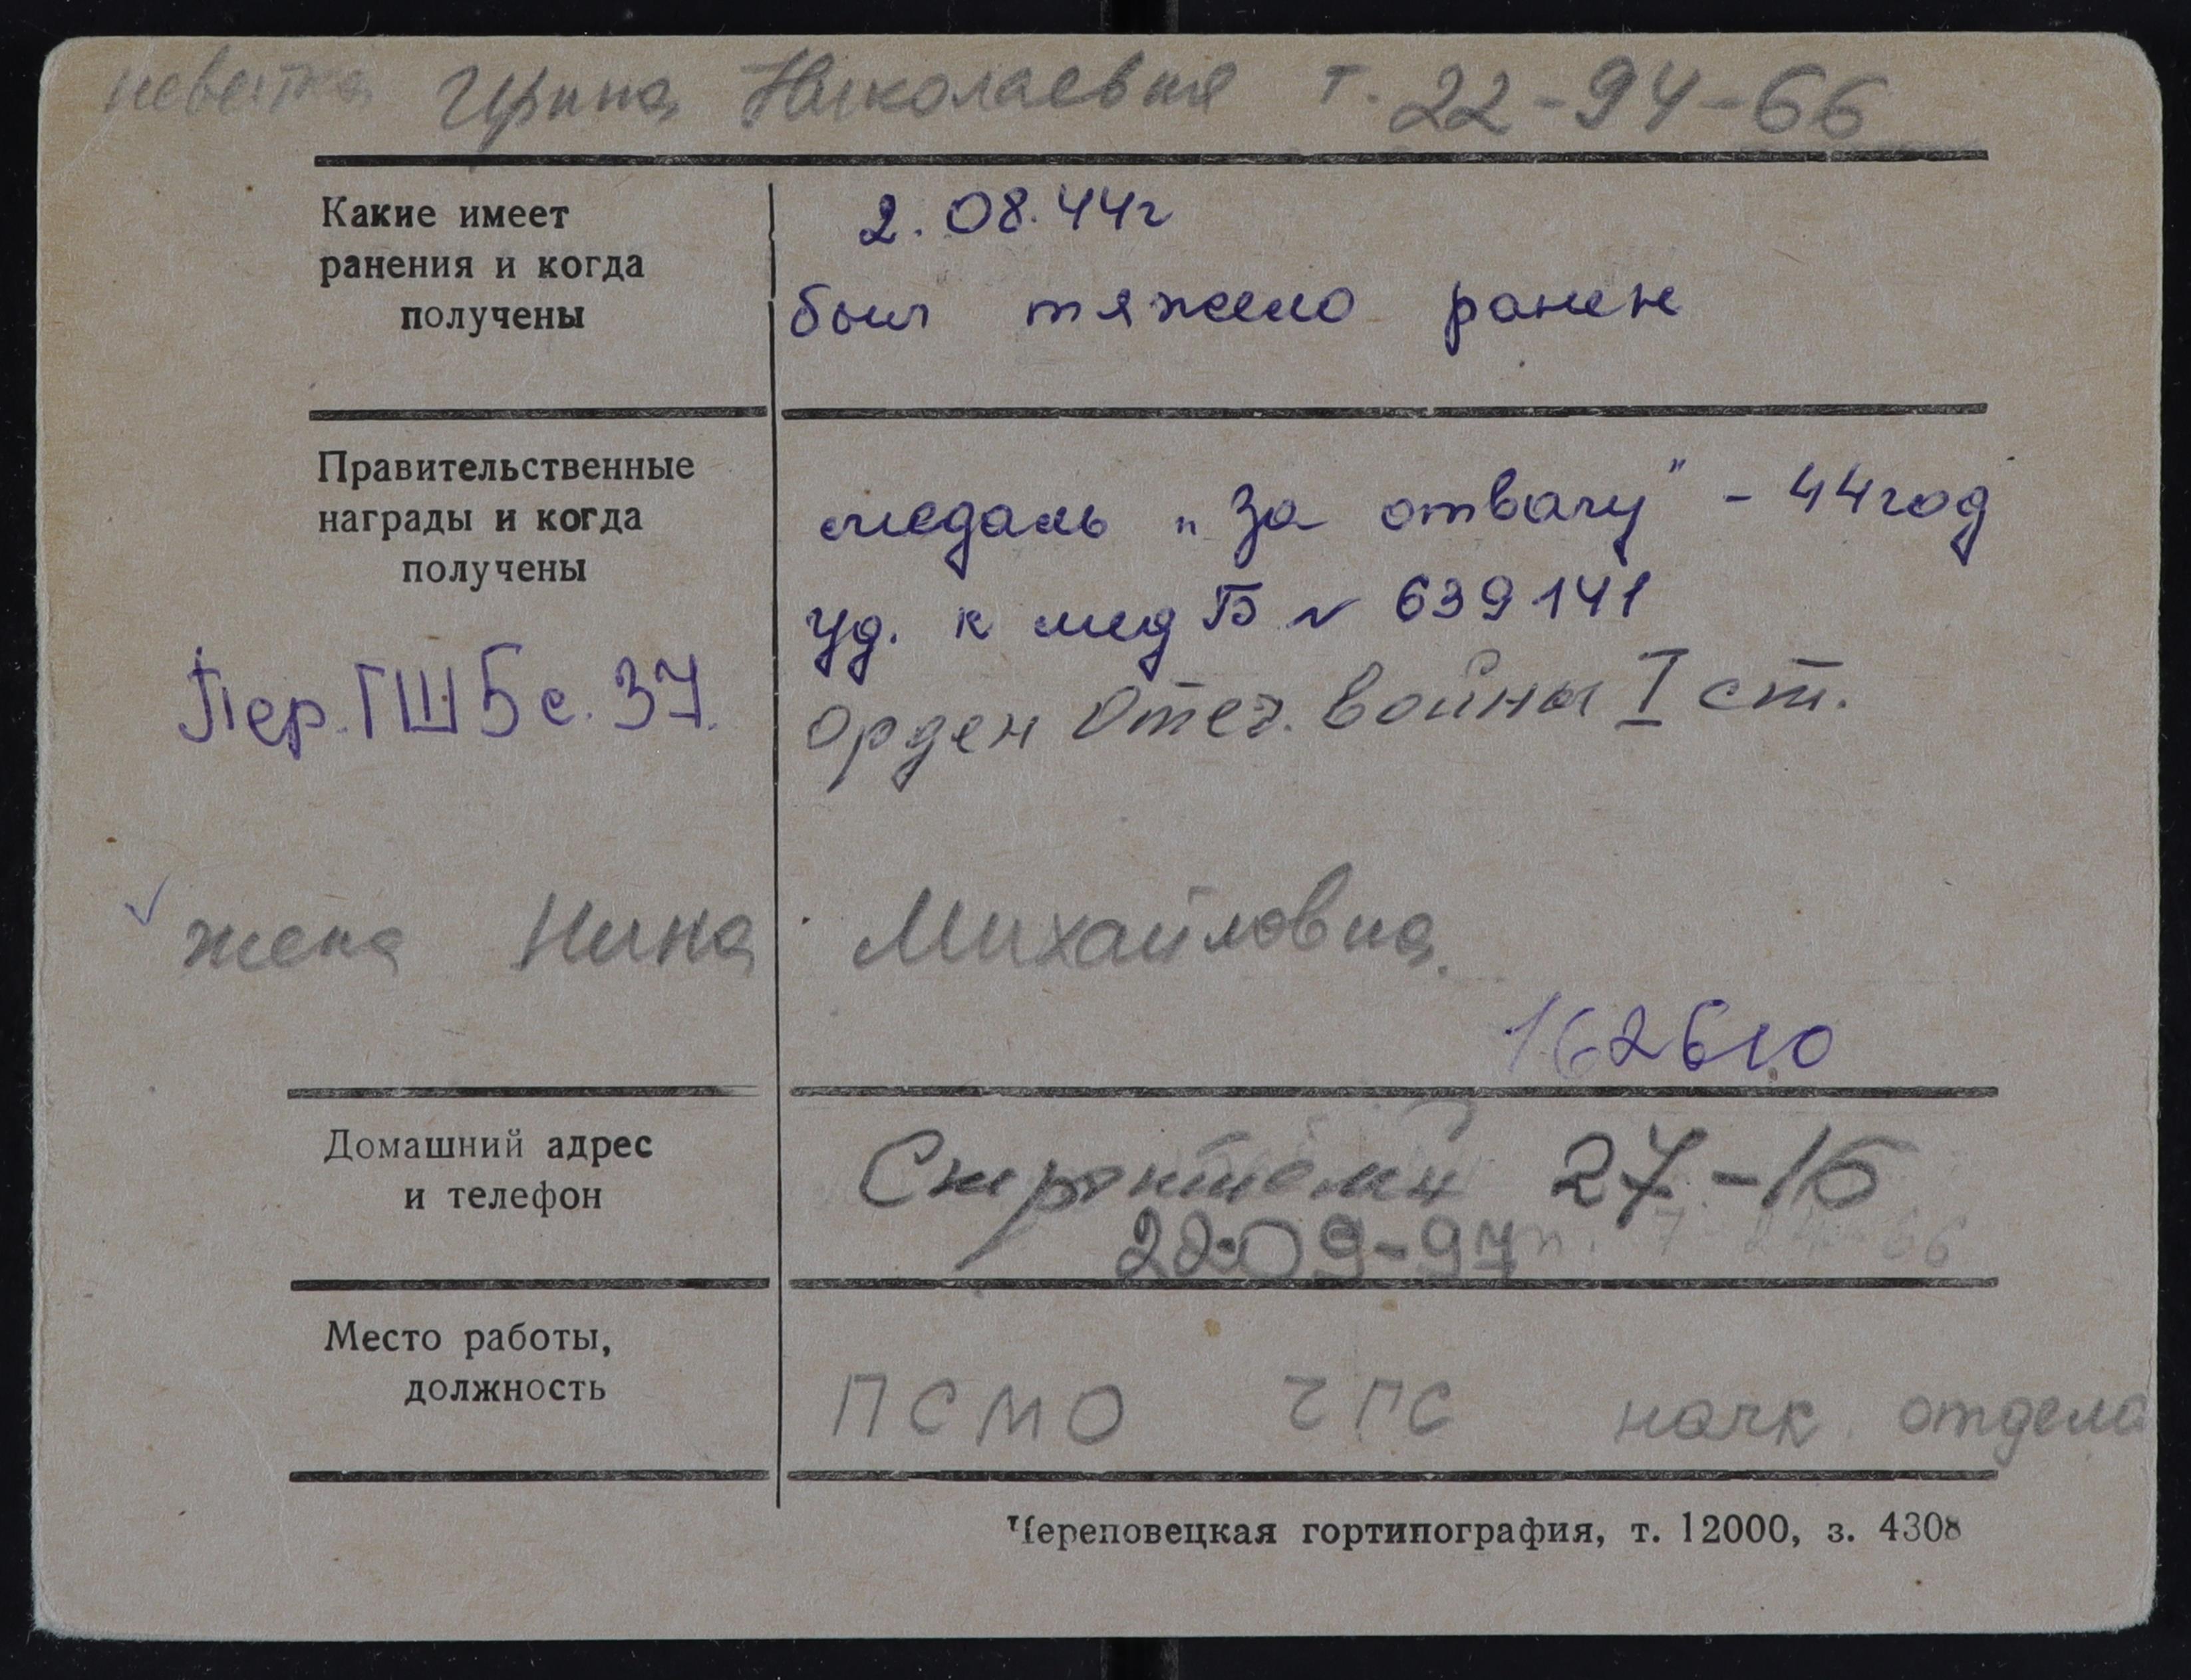 невестка Ирина Николаевна т. 22-94-66
Какие имеет
ранения и когда
получены
2.08.44г
был тяжело ранен
Правительственные
награды и когда
получены
медаль „За отвагу" - 44 год
Уд. к мед Б № 639141
орден Отеч. войны I ст.
Пер. ГШ 5 с. 37.
жена Нина Михайловна.
162610
Домашний адрес
и телефон
27-15
22-09-97
Место работы,
должность
ПСМО ЧПС начк. отдела
Череповецкая гортипография, т. 12000, з. 4308